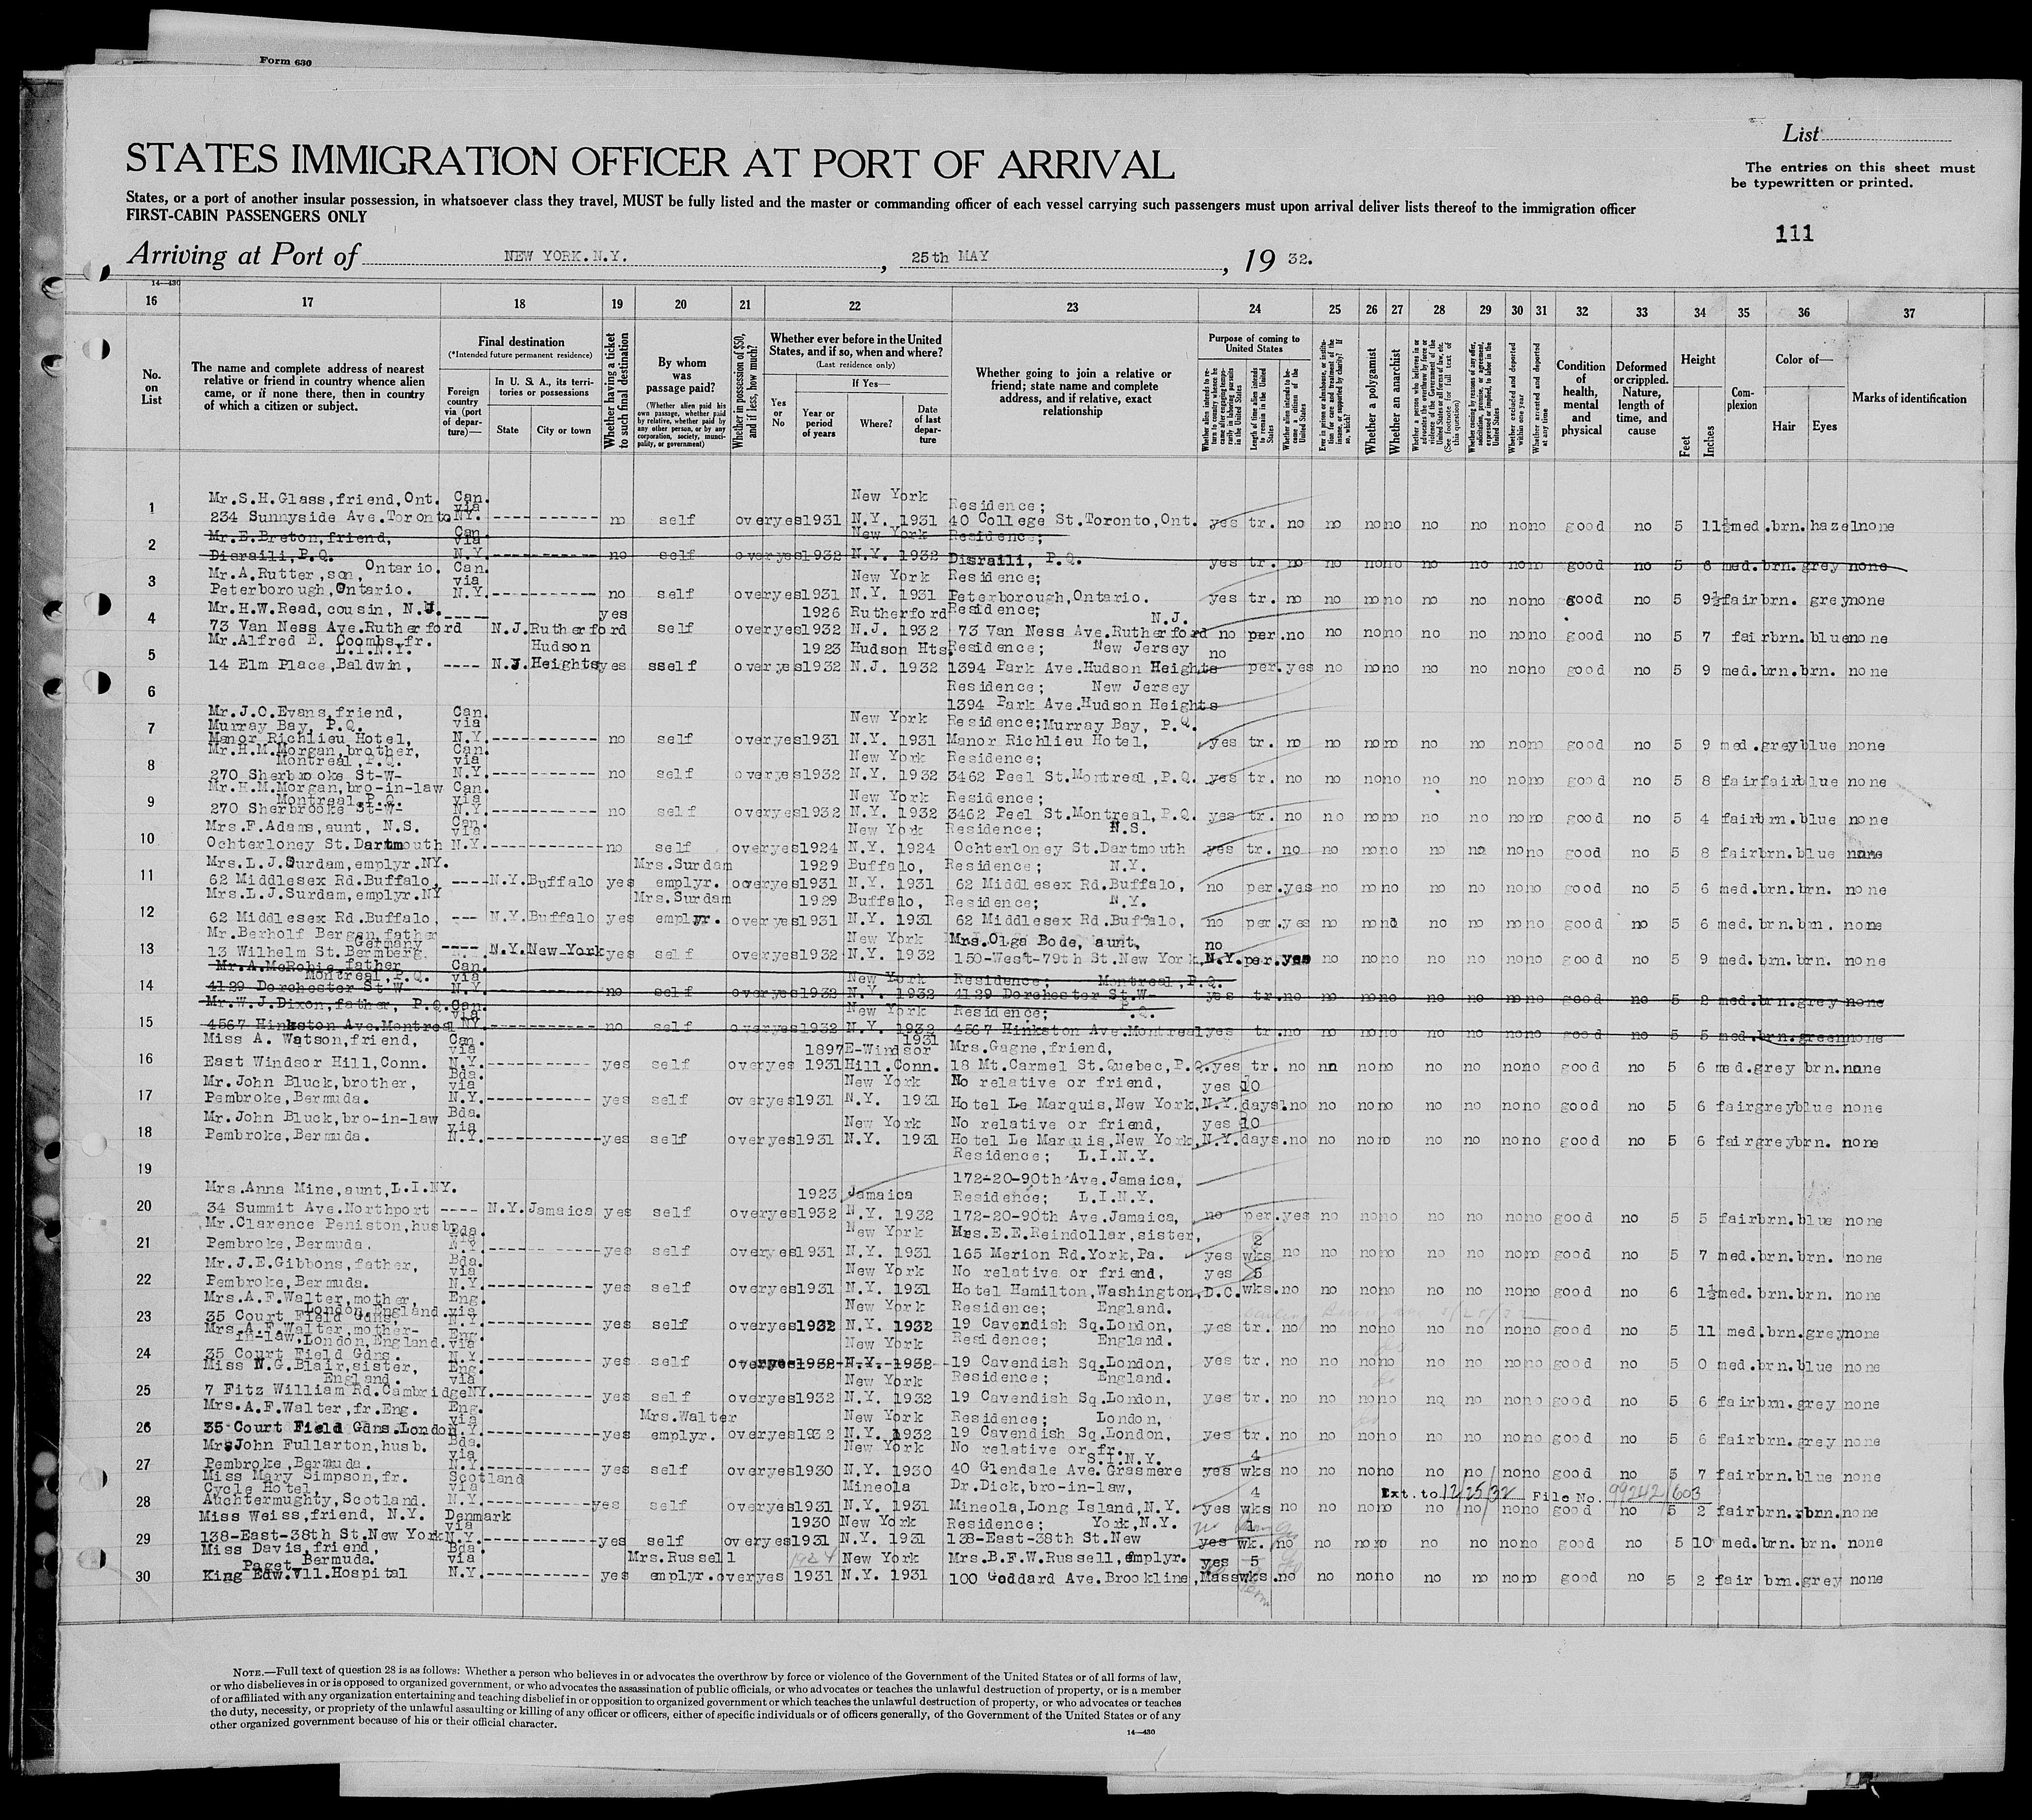 Form 630
List
STATES IMMIGRATION OFFICER AT PORT OF ARRIVAL
The entries on this sheet must
be typewritten or printed.
States, or a port of another insular possession, in whatsoever class they travel, MUST be fully listed and the master or commanding officer of each vessel carrying such passengers must upon arrival deliver lists thereof to the immigration officer
FIRST-CABIN PASSENGERS ONLY
111
Arriving at Port of NEW YORK.N.Y. , 25th MAY , 19 32.
14—430
16 17 18 19 20 21 22 23 24 25 26 27 28 29 30 31 32 33 34 35 36 37
No. on List
The name and complete address of nearest relative or friend in country whence alien came, or if none there, then in country of which a citizen or subject.
Final destination
(*Intended future permanent residence)
Foreign country via (port of departure)—
In U. S. A., its territories or possessions
State
City or town
Whether having a ticket to such final destination
By whom was passage paid?
(Whether alien paid his own passage, whether paid by relative, whether paid by any other person, or by any corporation, society, municipality, or government)
Whether in possession of $50, and if less, how much?
Whether ever before in the United States, and if so, when and where?
(Last residence only)
Yes or No
If Yes—
Year or period of years
Where?
Date of last departure
Whether going to join a relative or friend; state name and complete address, and if relative, exact relationship
Purpose of coming to United States
Whether alien intends to return to country whence he came after engaging temporarily in laboring pursuits in the United States
Length of time alien intends to remain in the United States
Whether alien intends to become a citizen of the United States
Ever in prison or almshouse, or institution for care and treatment of the insane, or supported by charity? If so, which?
Whether a polygamist
Whether an anarchist
Whether a person who believes in or advocates the overthrow by force or violence of the Government of the United States or all forms of law, etc. (See footnote for full text of this question)
Whether coming by reasons of any offer, solicitation, promise, or agreement, expressed or implied, to labor in the United States
Whether excluded and deported within one year
Whether arrested and deported at any time
Condition of health, mental and physical
Deformed or crippled. Nature, length of time, and cause
Height
Feet
Inches
Complexion
Color of—
Hair
Eyes
Marks of identification
1 Mr.S.H.Glass,friend,Ont. 234 Sunnyside Ave.Toronto Can. via NY. no self over yes 1931 New York N.Y. 1931 Residence; 40 College St.Toronto,Ont. yes tr. no no no no no no no no good no 5 11½ med. brn. hazel none
2 Mr.E.Breton,friend, Disraili,P.Q. Can. via N.Y. no self over yes 1932 New York N.Y. 1932 Residence; Disraili, P.Q. yes tr. no no no no no no no no good no 5 6 med. brn. grey none
3 Mr.A.Rutter,son, Ontario. Peterborough,Ontario. Can. via N.Y. no self over yes 1931 New York N.Y. 1931 Residence; Peterborough,Ontario. yes tr. no no no no no no no no good no 5 9½ fair brn. grey none
4 Mr.H.W.Read,cousin, N.J. 73 Van Ness Ave.Rutherford ---- N.J. Rutherford yes self over yes 1926 1932 Rutherford N.J. 1932 Residence; N.J. 73 Van Ness Ave.Rutherford no per. no no no no no no no no good no 5 7 fair brn. blue none
5 Mr.Alfred E. Coombs,fr. L.I.N.Y. 14 Elm Place,Baldwin, ---- N.J. Hudson Heights yes sself over yes 1923 1932 Hudson Hts. N.J. 1932 Residence; New Jersey 1394 Park Ave.Hudson Heights no per. yes no no no no no no no good no 5 9 med. brn. brn. none
6 Residence; New Jersey 1394 Park Ave.Hudson Heights
7 Mr.J.O.Evans,friend, Murray Bay, P.Q. Manor Richlieu Hotel, Can. via N.Y. no self over yes 1931 New York N.Y. 1931 Residence;Murray Bay, P.Q. Manor Richlieu Hotel, yes tr. no no no no no no no no good no 5 9 med. grey blue none
8 Mr.H.M.Morgan,brother, Montreal,P.Q. 270 Sherbrooke St-W- Can. via N.Y. no self over yes 1932 New York N.Y. 1932 Residence; 3462 Peel St.Montreal,P.Q. yes tr. no no no no no no no no good no 5 8 fair fair blue none
9 Mr.H.M.Morgan,bro-in-law Montreal,P.Q. 270 Sherbrooke St-W- Can. via N.Y. no self over yes 1932 New York N.Y. 1932 Residence; 3462 Peel St.Montreal,P.Q. yes tr. no no no no no no no no good no 5 4 fair brn. blue none
10 Mrs.F.Adams,aunt, N.S. Ochterloney St.Dartmouth Can. via N.Y. no self over yes 1924 New York N.Y. 1924 Residence; N.S. Ochterloney St.Dartmouth yes tr. no no no no no no no no good no 5 8 fair brn. blue none
11 Mrs.L.J.Surdam,emplyr.NY. 62 Middlesex Rd.Buffalo, ---- N.Y. Buffalo yes Mrs.Surdam emplyr. over yes 1929 1931 Buffalo, N.Y. 1931 Residence; N.Y. 62 Middlesex Rd.Buffalo, no per. yes no no no no no no no good no 5 6 med. brn. brn. none
12 Mrs.L.J.Surdam,emplyr.NY 62 Middlesex Rd.Buffalo, --- N.Y. Buffalo yes Mrs.Surdam emplyr. over yes 1929 1931 Buffalo, N.Y. 1931 Residence; N.Y. 62 Middlesex Rd.Buffalo, no per. yes no no no no no no no good no 5 6 med. brn. brn. none
13 Mr.Berholf Bergan,father Germany 13 Wilhelm St.Bermberg. ---- N.Y. New York yes self over yes 1932 New York N.Y. 1932 Mrs.Olga Bode, aunt, 150-West-79th St.New York,N.Y. no per. yes no no no no no no no good no 5 9 med. brn. brn. none
14 Mr.A.McRobie,father Montreal,P.Q. 4129 Dorchester St-W- Can. via N.Y. no self over yes 1932 New York N.Y. 1932 Residence; Montreal,P.Q. 4129 Dorchester St.W- yes tr. no no no no no no no no good no 5 2 med. brn. grey none
15 Mr.W.J.Dixon,father, P.Q. 4567 Hinkston Ave.Montreal Can. via NY. no self over yes 1932 New York N.Y. 1932 Residence; P.Q. 4567 Hinkston Ave.Montreal yes tr. no no no no no no no no good no 5 5 med. brn. green none
16 Miss A. Watson,friend, East Windsor Hill,Conn. Can. via N.Y. yes self over yes 1897 1931 E-Windsor Hill.Conn. 1931 Mrs.Gagne,friend, 18 Mt.Carmel St.Quebec,P.Q. yes tr. no no no no no no no no good no 5 6 med. grey brn. none
17 Mr.John Bluck,brother, Pembroke,Bermuda. Bda. via N.Y. yes self over yes 1931 New York N.Y. 1931 No relative or friend, Hotel Le Marquis,New York,N.Y. yes 10 days. no no no no no no no no good no 5 6 fair grey blue none
18 Mr.John Bluck,bro-in-law Pembroke,Bermuda. Bda. via N.Y. yes self over yes 1931 New York N.Y. 1931 No relative or friend, Hotel Le Marquis,New York,N.Y. yes 10 days. no no no no no no no no good no 5 6 fair grey brn. none
19 Residence; L.I.N.Y. 172-20-90th Ave.Jamaica,
20 Mrs.Anna Mine,aunt,L.I.NY. 34 Summit Ave.Northport ---- N.Y. Jamaica yes self over yes 1923 1932 Jamaica N.Y. 1932 Residence; L.I.N.Y. 172-20-90th Ave.Jamaica, no per. yes no no no no no no no good no 5 5 fair brn. blue none
21 Mr.Clarence Peniston,husb. Pembroke,Bermuda. Bda. via N.Y. yes self over yes 1931 New York N.Y. 1931 Mrs.E.E.Reindollar,sister, 165 Merion Rd.York,Pa. yes 2 wks no no no no no no no no good no 5 7 med. brn. brn. none
22 Mr.J.E.Gibbons,father, Pembroke,Bermuda. Bda. via N.Y. yes self over yes 1931 New York N.Y. 1931 No relative or friend, Hotel Hamilton,Washington,D.C. yes 5 wks. no no no no no no no no good no 6 1½ med. brn. brn. none
23 Mrs.A.F.Walter,mother, London,England. 35 Court Field Gdns, Eng. via N.Y. yes self over yes 1932 New York N.Y. 1932 Residence; England. 19 Cavendish Sq.London, yes tr. no no no no no no no no good no 5 11 med. brn. grey none
24 Mrs.A.F.Walter,mother-in-law,London,England. 35 Court Field Gdns. Eng. via N.Y. yes self over yes 1932 New York N.Y. 1932 Residence; England. 19 Cavendish Sq.London, yes tr. no no no no no no no no good no 5 0 med. brn. blue none
25 Miss N.G.Blair,sister, England. 7 Fitz William Rd.Cambridge Eng. via NY. yes self over yes 1932 New York N.Y. 1932 Residence; England. 19 Cavendish Sq.London, yes tr. no no no no no no no no good no 5 6 fair brn. grey none
26 Mrs.A.F.Walter,fr.Eng. 35 Court Field Gdns.London Eng. via N.Y. yes Mrs.Walter emplyr. over yes 1932 New York N.Y. 1932 Residence; London, 19 Cavendish Sq.London, yes tr. no no no no no no no no good no 5 6 fair brn. grey none
27 Mrs John Fullarton,husb. Pembroke,Bermuda. Bda. via N.Y. yes self over yes 1930 New York N.Y. 1930 No relative or fr. S.I.N.Y. 40 Glendale Ave.Grasmere yes 4 wks no no no no no no no no good no 5 7 fair brn. blue none
Ext. to 12/25/32 File No. 99242/603
28 Miss Mary Simpson,fr. Cycle Hotel, Auchtermughty,Scotland. Scotland via N.Y. yes self over yes 1931 Mineola N.Y. 1931 Dr.Dick,bro-in-law, Mineola,Long Island,N.Y. yes 4 wks no no no no no no no no good no 5 2 fair brn. brn. none
29 Miss Weiss,friend, N.Y. 138-East-38th St.New York Denmark via N.Y. yes self over yes 1930 1931 New York N.Y. 1931 Residence; York,N.Y. 138-East-38th St.New no yes 1 wk. no no no no no no no no good no 5 10 med. brn. brn. none
30 Miss Davis,friend, Paget Bermuda. King Edw.Vll.Hospital Bda. via N.Y. yes Mrs.Russell emplyr. over yes 1924 1931 New York N.Y. 1931 Mrs.B.F.W.Russell,emplyr. 100 Goddard Ave.Brookline,Mass yes 5 wks. no no no no no no no no good no 5 2 fair brn. grey none
NOTE.—Full text of question 28 is as follows: Whether a person who believes in or advocates the overthrow by force or violence of the Government of the United States or of all forms of law,
or who disbelieves in or is opposed to organized government, or who advocates the assassination of public officials, or who advocates or teaches the unlawful destruction of property, or is a member
of or affiliated with any organization entertaining and teaching disbelief in or opposition to organized government or which teaches the unlawful destruction of property, or who advocates or teaches
the duty, necessity, or propriety of the unlawful assaulting or killing of any officer or officers, either of specific individuals or of officers generally, of the Government of the United States or of any
other organized government because of his or their official character.
14—430